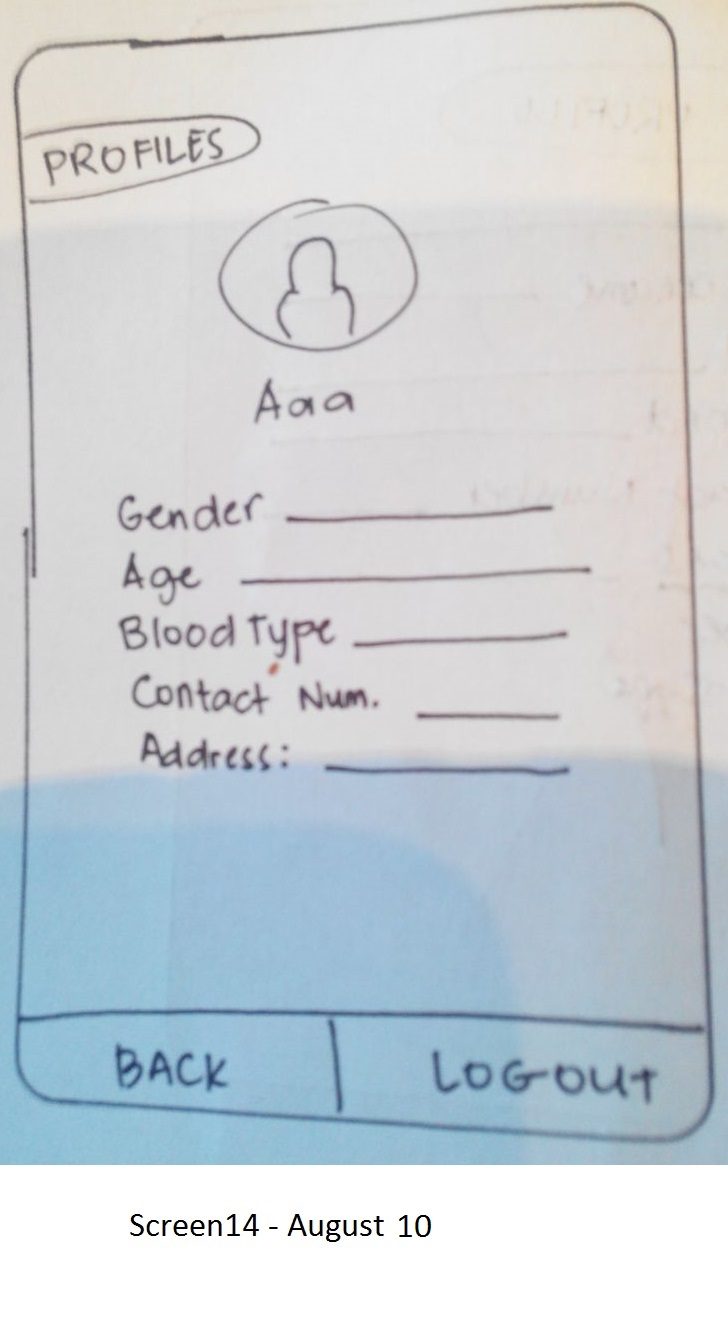 PROFILES
Aaa
Gender
Age
Blood Type
Contact Num.
Address:
BACK LOGOUT
Screen14 - August 10